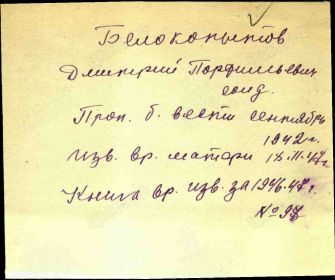 Белокопытов
Дмитрий Порфильевич
солд.
Проп. б. вести сентябрь
1942 г.
изв. вр. матери 18.II.47 г.
Книга вр. изв. за 1946-47 г.
№ 93